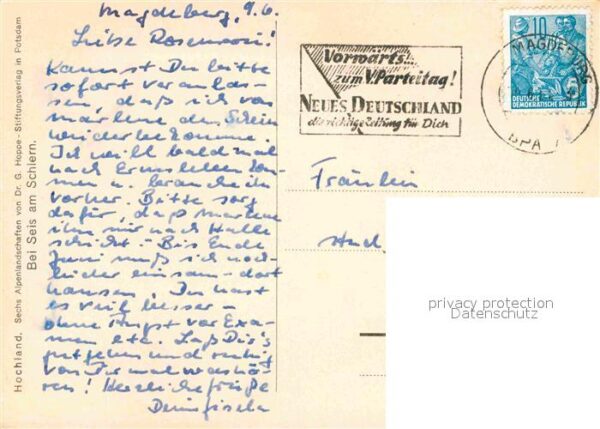 Magdeburg, 9.6.
Liebe Rosemarie!
Kannst Du bitte
sofort veranlas-
sen, daß ich von
Marlene den Schein
wiederbekomme.
Ich will bald mal
nach kom-
men u. brauche ihn
vorher. Bitte sorg
dafür, daß Marlene
ihn mir nach Halle
schickt - Bis Ende
Juni muß ich noch
leider einsam dort
hausen. Du hast
es viel besser -
ohne Angst vor Exa-
men etc. Laß Dir's
gut gehen und ruhig
von Dir mal was hö-
ren! Herzliche Grüße
Deine Gisela
Hochland. Sechs Alpenlandschaften von Dr. G. Hoppe - Stiftungsverlag in Potsdam
Bei Seis am Schlern.
Vorwärts...
zum V. Parteitag!
NEUES DEUTSCHLAND
die richtige Zeitung für Dich
10
DEUTSCHE
DEMOKRATISCHE REPUBLIK
MAGDEBURG
BPA
Fräulein
privacy protection
Datenschutz